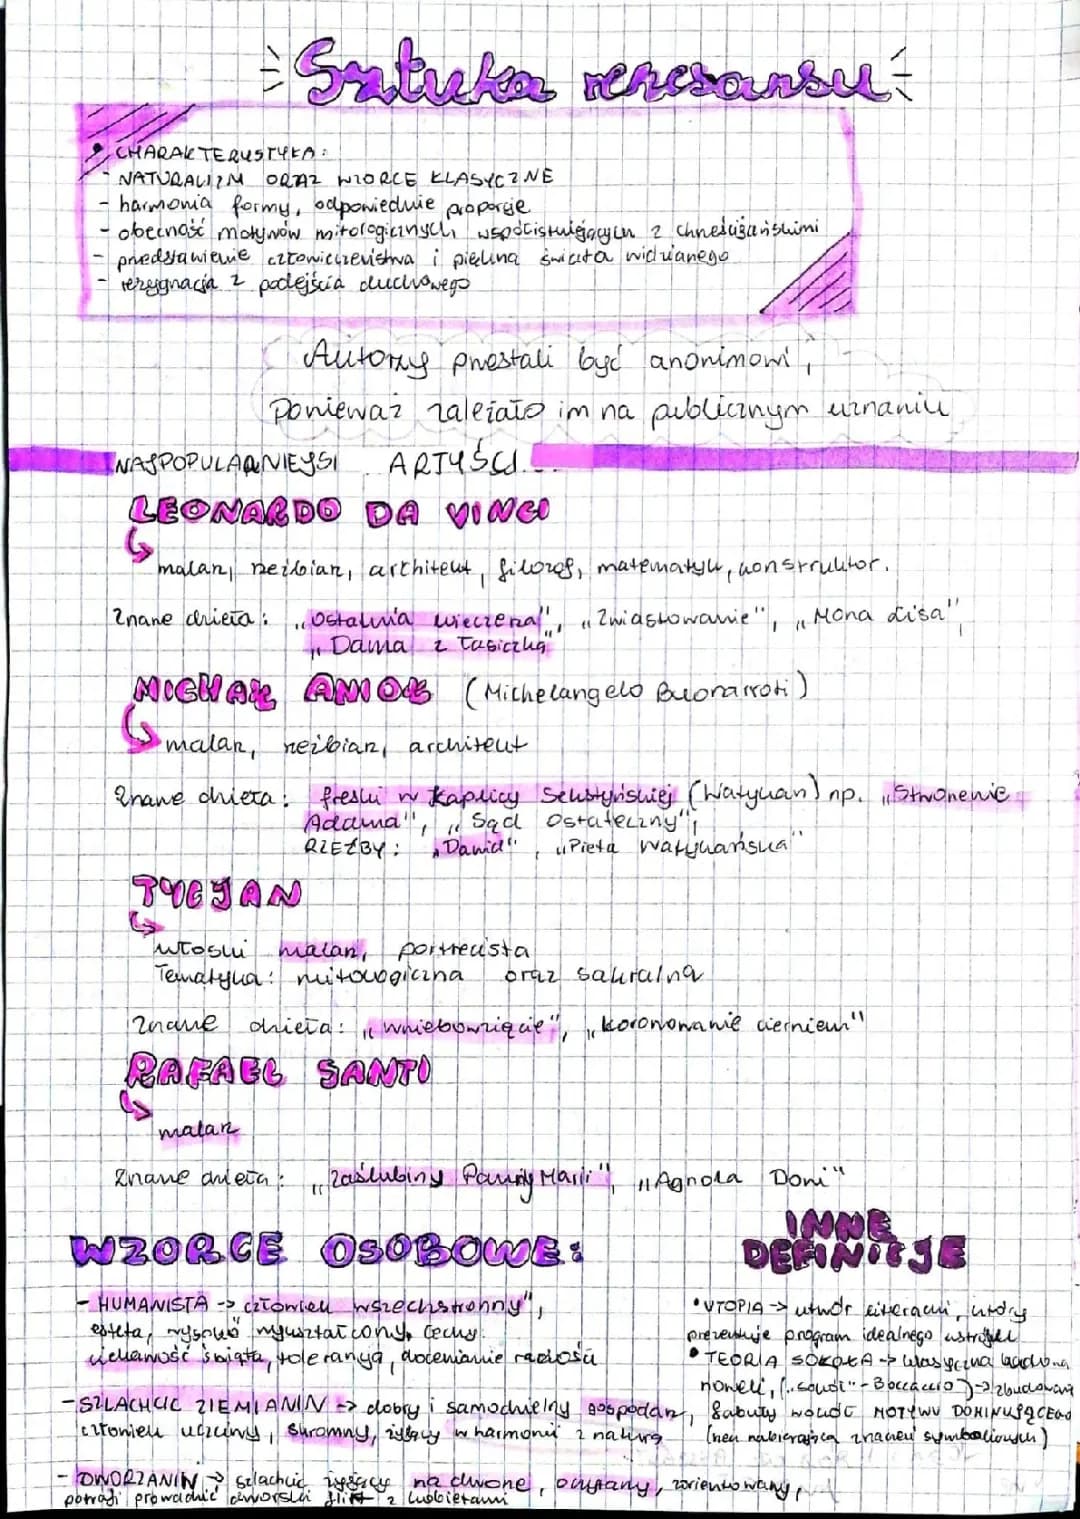 Sztuka renesansu
• CHARAKTERYSTYKA:
- NATURALIZM ORAZ WZORCE KLASYCZNE
- harmonia formy, odpowiednie proporcje
- obecność motywów mitologicznych współistniejących z chrześcijańskimi
- przedstawienie człowieczeństwa i piękna świata widzianego
- rezygnacja z podejścia duchowego
Autorzy przestali być anonimowi,
Ponieważ zależało im na publicznym uznaniu
NAJPOPULARNIEJSI ARTYŚCI...
LEONARDO DA VINCI
malarz, rzeźbiarz, architekt, filozof, matematyk, konstruktor.
Znane dzieła: „Ostatnia wieczerza", „Zwiastowanie", „Mona Lisa",
„Dama z łasiczką"
MICHAŁ ANIOŁ (Michelangelo Buonarroti)
malarz, rzeźbiarz, architekt
Znane dzieła: freski w Kaplicy Sekstyńskiej (Watykan) np. „Stworzenie
Adama", „Sąd Ostateczny",
RZEŹBY: „Dawid", „Pieta watykańska"
TYCJAN
włoski malarz, portrecista
Tematyka: mitologiczna oraz sakralna
Znane dzieła: „Wniebowzięcie", „koronowanie cierniem"
RAFAEL SANTI
malarz
Znane dzieła: „Zaślubiny Panny Marii", „Agnola Doni"
WZORCE OSOBOWE:
- HUMANISTA -> człowiek wszechstronny",
esteta, wysoko wykształcony, cechy:
ciekawość świata, tolerancja, docenianie radości
- SZLACHCIC ZIEMIANIN -> dobry i samodzielny gospodarz,
człowiek uczciwy, skromny, żyjący w harmonii z naturą
- DWORZANIN -> szlachcic żyjący na dworze, oczytany, zorientowany,
potrafi prowadzić dworski flirt z kobietami
INNE
DEFINICJE
• UTOPIA -> utwór literacki, który
prezentuje program idealnego ustroju
• TEORIA SOKOŁA -> klasyczna budowa
noweli, („sokół" - Boccaccio) -> zbudowana
fabuły wokół MOTYWU DOMINUJĄCEGO
(rzecz nabierająca znaczeń symbolicznych)